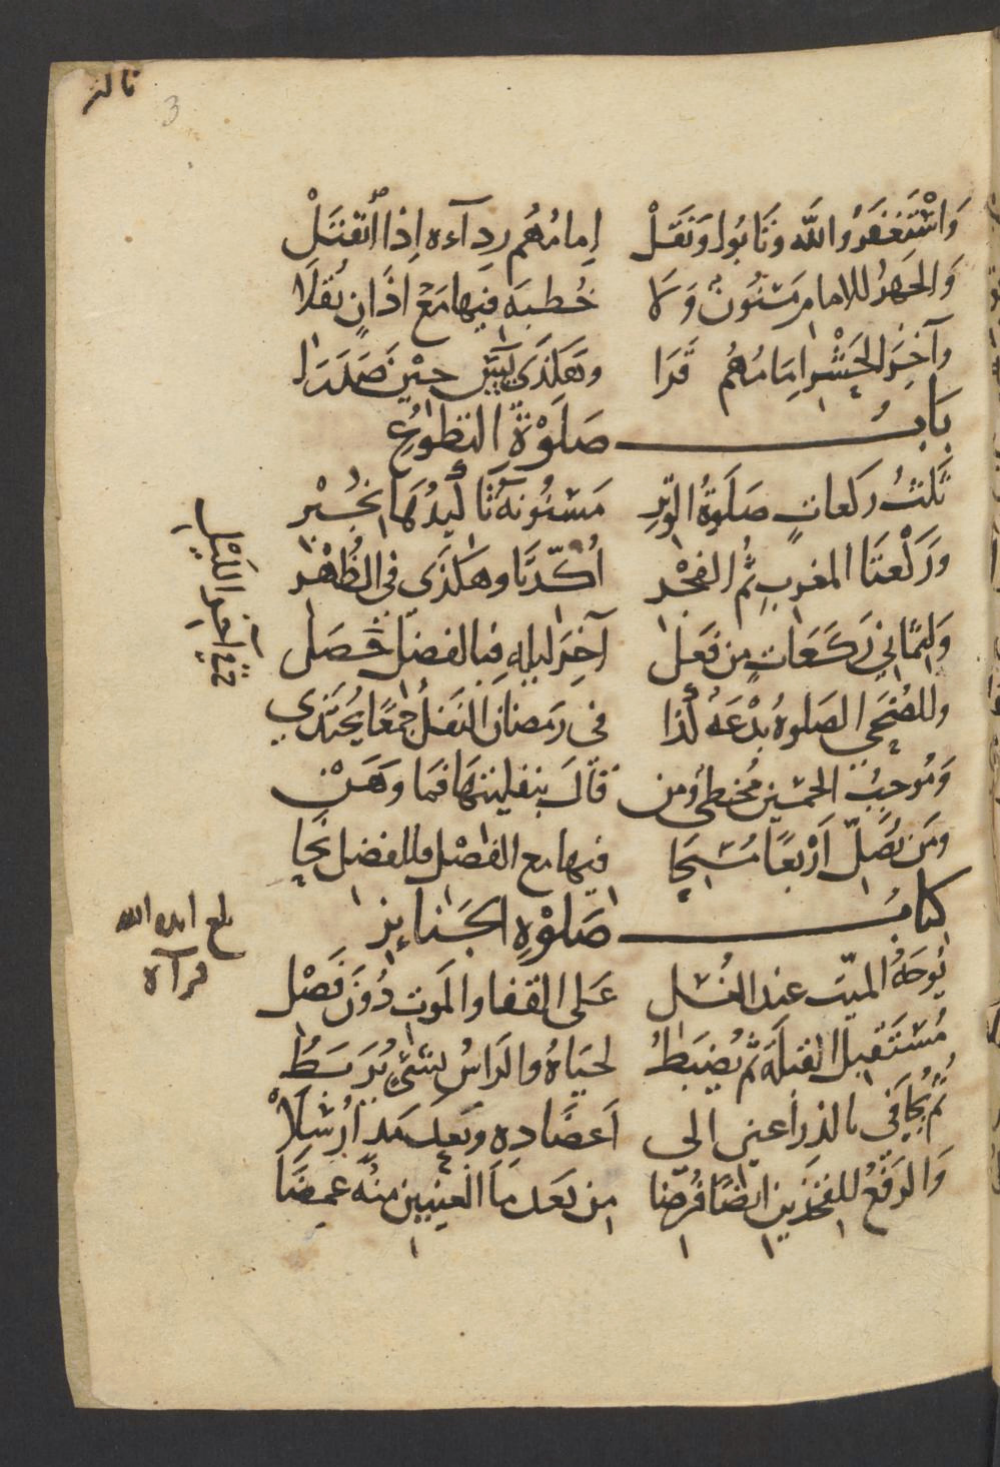 ثالث
3
وَاسْتَغْفَرُوا اللَّه وتَابُوا وَنَقَلْ   إمامُهُم رِدآءه إذا انْفَتَلْ
وَالجَهرُ للامام مَسْنُونٌ وَلا   خُطبه فيها مَعْ اذَانٍ نُقلَا
وآخِرَ الحَشْرِ إمَامُهُم قَرَا   وهَكذَى يَس حِيْنَ
بَابُ صَلَوٰةِ التَّطَوُّعِ
ثَلثُ ركعاتٍ صَلَوةُ الوِترِ   مَسْنُونَةٌ تَأكيدُهَا بِخُبْرِ
وَرَكْعَتَا المغربِ ثُم الفَجْرِ   اُكّدَتَا وهكذَى فى الظُهْرِ
وَالثمَّانِي رَكَعَاتٍ مَن فَعَل   آخِرَ ليلِهِ فبالفضلِ حَصَل
وللضُّحَى الصَلوةُ بدْعَةٌ كَذا   فى رَمضانَ النَفلُ جمعًا يُحتذى
وَمُوجِبُ الخمسِين مُخطئ ومن   قال بنفليتهَا فما وَهَنْ
ومَن يُصَلّ أَرْبعًا مُسَبّحَا   فيها مع الفَضْل فللفضل نَحَا
كتابُ صَلَوٰةِ الجَنَائِز
يُوجَهُ الميّت عند الغُسْلِ   عَلى القفا والموت دُونَ فَصْل
مُسْتَقبِلَ القبلَةَ ثم يُضبَطُ   لحيَاهُ والرَاسُ بشَئٍ يُرْبَطُ
ثُم يُجَافَى بالذِراعين الى   اعضَادِهِ وبَعدَ مَدٍّ أُرْسِلَا
وَالرَفعُ للفخذَينِ ايضًا فُرِضَا   من بَعد مَا العَينين منهُ غمضَا
آخر الليل
بلغ ايده الله
قرآة